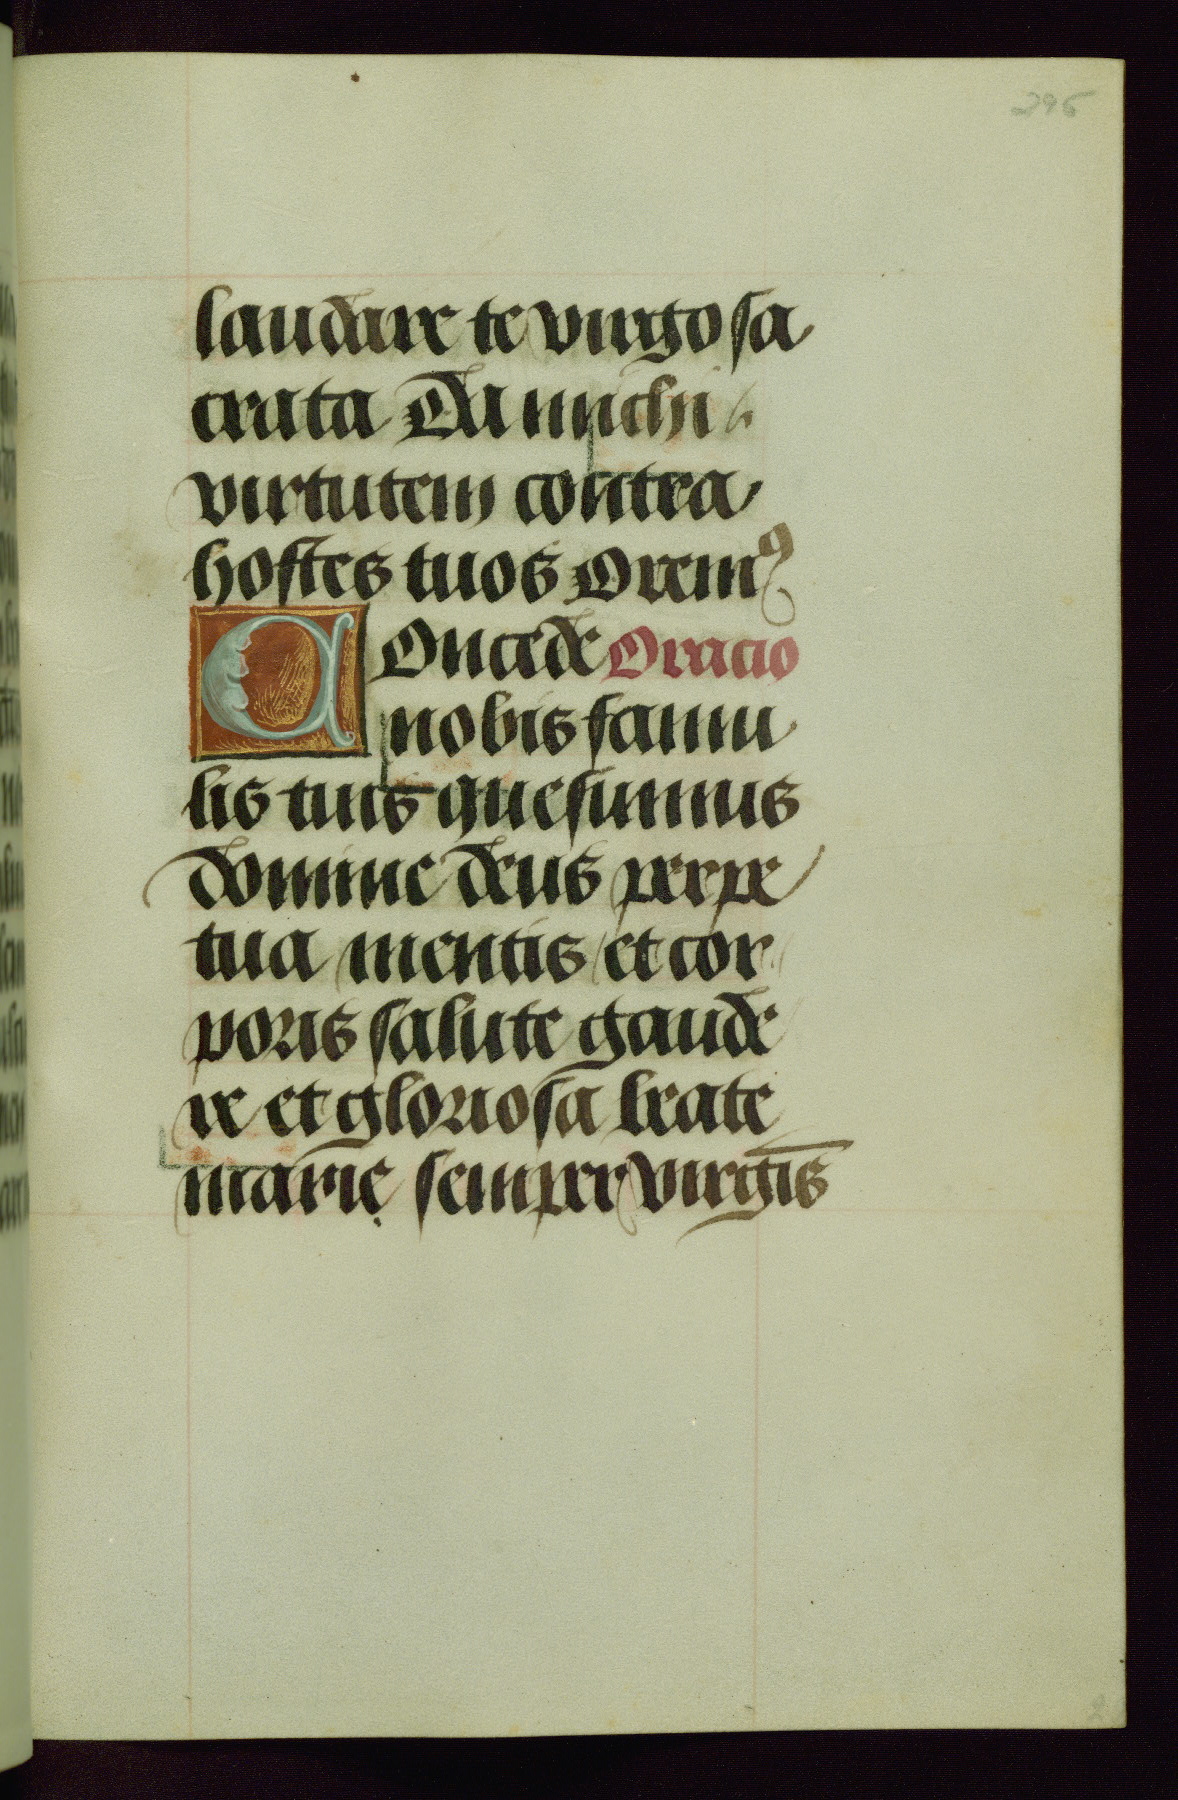 295
laudare te virgo sa
crata Da michi
virtutem contra
hostes tuos Oremꝰ
Concede Oracio
nobis famu
lis tuis quesumus
domine deus perpe
tua mentis et cor
poris salute gaude
re et gloriosa beate
marie semper virgis̄